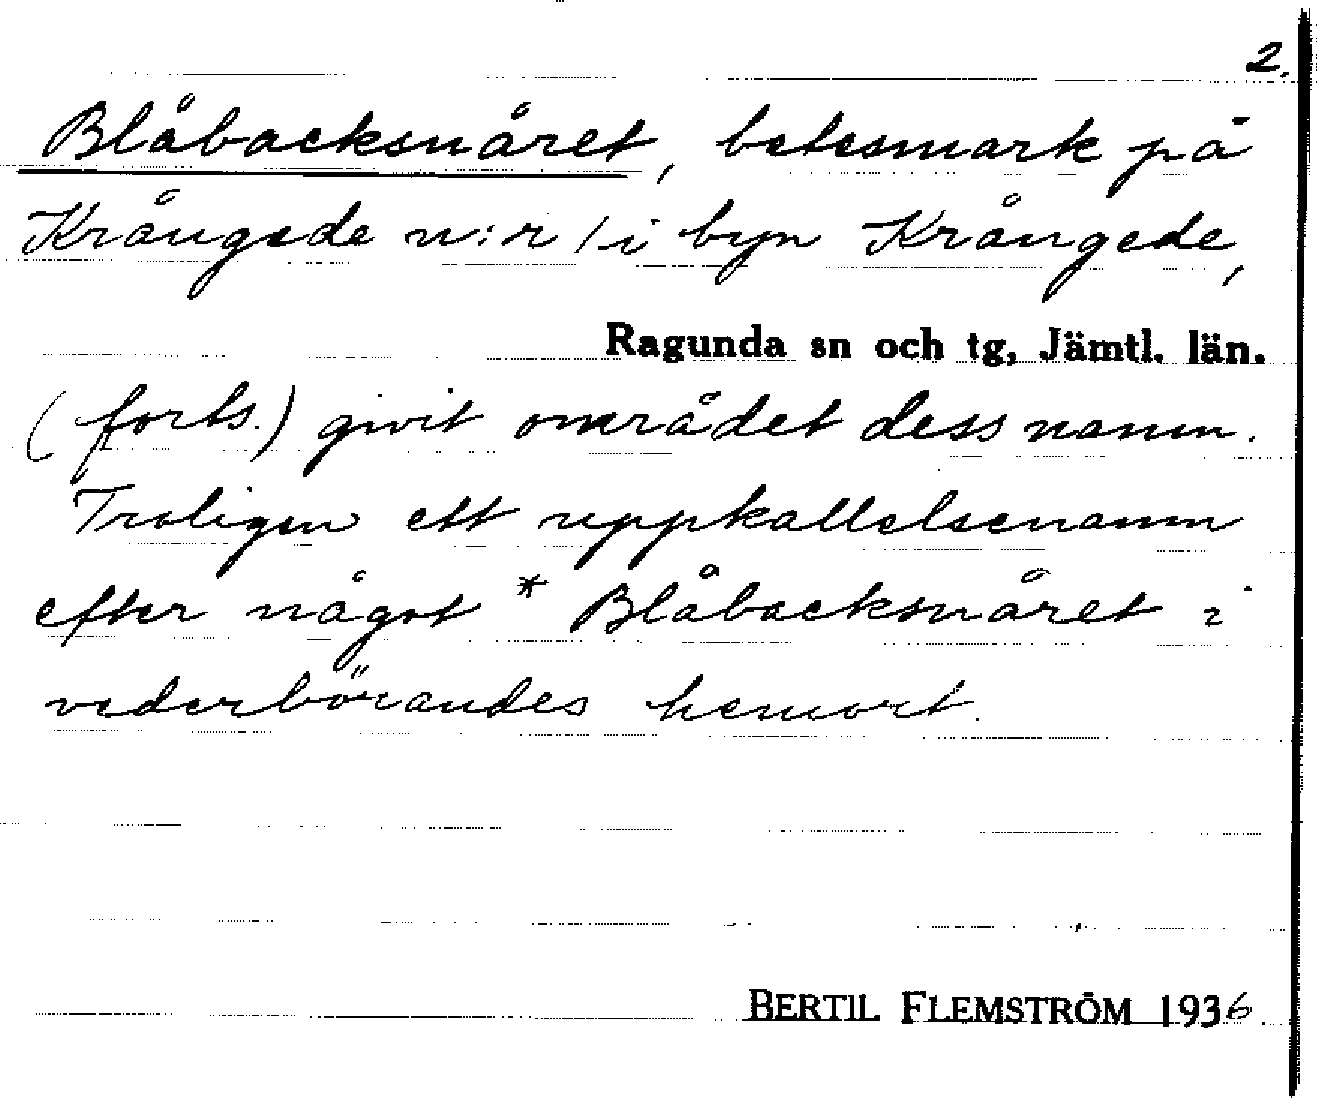 2.
Blåbacksnåret, betesmark på
Krångede n:r 1 i byn Krångede,
Ragunda sn och tg, Jämtl. län.
(forts.) givit området dess namn.
Troligen ett uppkallelsenamn
efter något * Blåbacksnåret i
vederbörandes hemort.
BERTIL FLEMSTRÖM 1936.